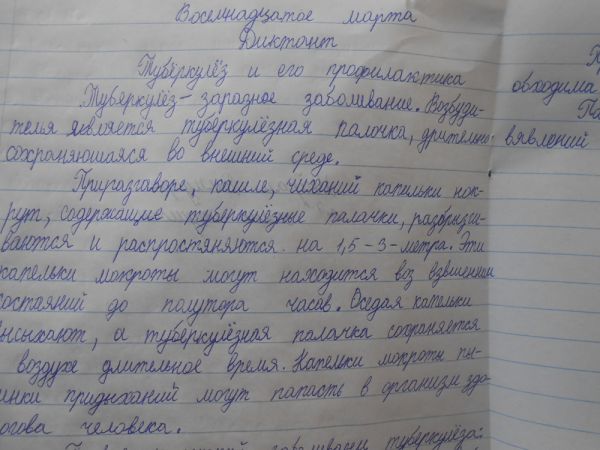 Восемнадцатое марта
Диктант
Туберкулёз и его профилактика
Туберкулёз – заразное заболевание. Возбуди-
теля является туберкулёзная палочка, длительно
сохраняющаяся во внешний среде.
Приразговоре, кашле, чиханий капельки мок-
рут, содержащие туберкулёзные палачки, разбрызги-
ваются и распростяняются на 1,5 – 3 – метра. Эти
капельки мокроты могут находится воз взвишенном
состаяний до паутора часов. Оседая капельки
высыхают, а туберкулёзная палачка сохраняется
воздухе длительное время. Капельки мокроты пы-
инки придыханий могут папасть в организм здо-
огова человека.
туберкулёза:
обходима
Па
вявлений